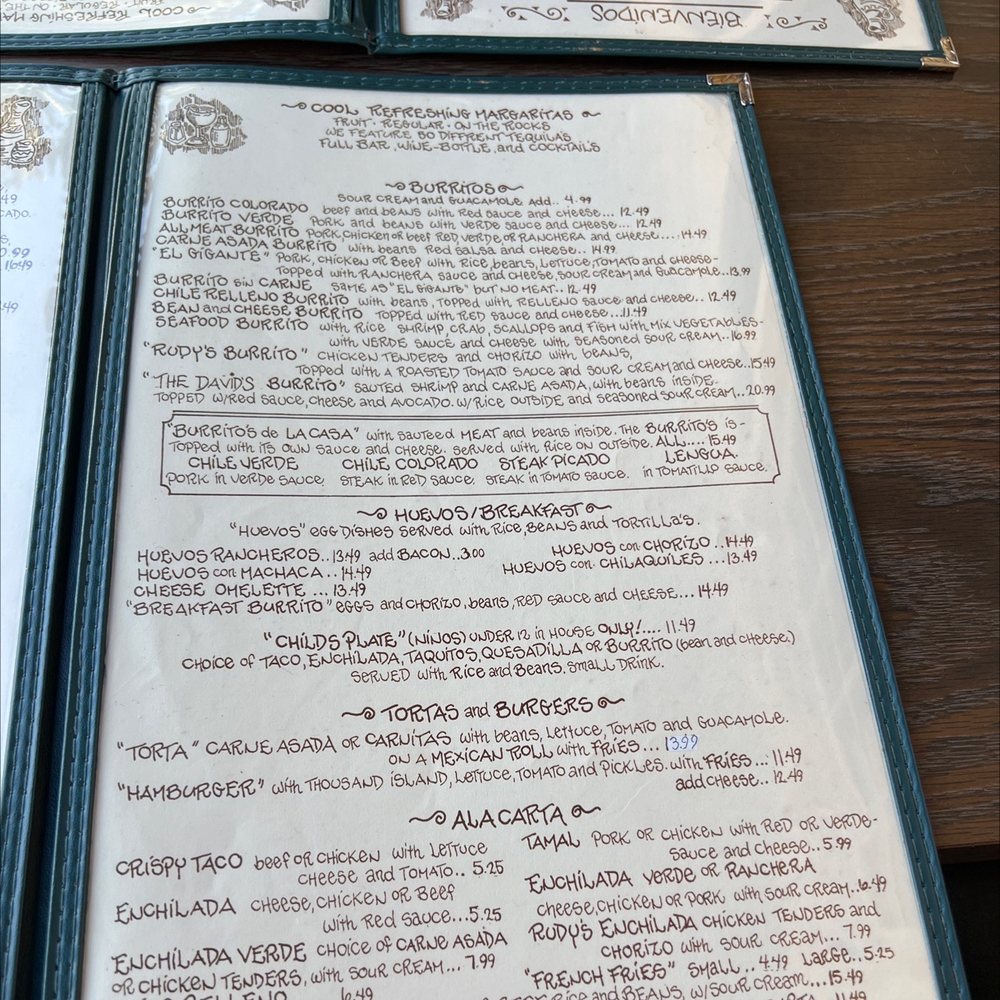 COOL REFRESHING MA
FRUIT · REGULAR · ON THE
BIENVENIDOS
49
CADO.
0.99
16.49
.49
COOL REFRESHING MARGARITAS
FRUIT · REGULAR · ON THE ROCKS
WE FEATURE 80 DIFFRENT TEQUILA'S
FULL BAR, WINE-BOTTLE, and COCKTAILS
BURRITOS
SOUR CREAM and GUACAMOLE ADD.. 4.99
BURRITO COLORADO beef and BEANS with RED SAUCE and CHEESE... 12.49
BURRITO VERDE PORK and beans with VERDE SAUCE and CHEESE... 12.49
ALL MEAT BURRITO PORK, CHICKEN or beef RED, VERDE, or RANCHERA and CHEESE.... 14.49
CARNE ASADA BURRITO with beans Red SALSA and cheese... 14.99
"EL GIGANTE" PORK, CHICKEN or BEEF with Rice, beans, LETTUCE, TOMATO and cheese-
-TOPPED with RANCHERA SAUCE and CHEESE, SOUR CREAM and GUACAMOLE...13.99
BURRITO SIN CARNE SAME AS "EL GIGANTE" but NO MEAT.. 12.49
CHILE RELLENO BURRITO with beans, TOPPED with RELLENO SAUCE and CHEESE.. 12.49
BEAN and CHEESE BURRITO TOPPED with RED SAUCE and CHEESE...11.49
SEAFOOD BURRITO with Rice SHRIMP, CRAB, SCALLOPS and FISH with MIX VEGETABLES-
-with VERDE SAUCE and CHEESE with SEASONED SOUR CREAM..16.99
"RUDY'S BURRITO" CHICKEN TENDERS and CHORIZO with BEANS,
TOPPED with A ROASTED TOMATO SAUCE and SOUR CREAM and CHEESE..15.49
"THE DAVID'S BURRITO" SAUTED SHRIMP and CARNE ASADA, with beans INSIDE.
TOPPED W/Red SAUCE, CHEESE and AVOCADO. W/RICE OUTSIDE and SEASONED SOUR CREAM,..20.99
"BURRITO'S de LA CASA" with SAUTEED MEAT and beans inside. THE BURRITO'S IS -
-TOPPED with ITS OWN SAUCE and CHEESE. SERVED with RICE ON OUTSIDE. ALL.... 15.49
CHILE VERDE CHILE COLORADO STEAK PICADO LENGUA.
PORK in VERDE SAUCE STEAK in RED SAUCE, STEAK in TOMATO SAUCE. in TOMATILLO SAUCE.
HUEVOS/BREAKFAST
"HUEVOS" EGG DISHES SERVED with RICE, BEANS and TORTILLA'S.
HUEVOS RANCHEROS..13.49 add BACON..3.00 HUEVOS con CHORIZO ..14.49
HUEVOS con MACHACA ..14.49 HUEVOS con CHILAQUILES ...13.49
CHEESE OMELETTE ... 13.49
"BREAKFAST BURRITO" EGGS and CHORIZO, beans, RED SAUCE and CHEESE... 14.49
"CHILD'S PLATE" (NIÑOS) UNDER 12 in HOUSE ONLY!.... 11.49
CHOICE of TACO, ENCHILADA, TAQUITOS, QUESADILLA OR BURRITO (bean and cheese.)
SERVED with RICE and BEANS. SMALL DRINK.
TORTAS and BURGERS
"TORTA" CARNE ASADA OR CARNITAS with beans, LETTUCE, TOMATO and GUACAMOLE.
ON A MEXICAN ROLL with FRIES ... 13.99
"HAMBURGER" with THOUSAND ISLAND, LETTUCE, TOMATO and PICKLES. with FRIES... 11.49
add cheese.. 12.49
ALA CARTA
CRISPY TACO beef OR CHICKEN with LETTUCE
CHEESE and TOMATO.. 5.25
ENCHILADA CHEESE, CHICKEN OR BEEF
with Red SAUCE...5.25
ENCHILADA VERDE CHOICE of CARNE ASADA
OR CHICKEN TENDERS, with SOUR CREAM... 7.99
RELLENO 6.49
TAMAL PORK OR CHICKEN with RED OR VERDE-
SAUCE and CHEESE..5.99
ENCHILADA VERDE OR RANCHERA
CHEESE, CHICKEN OR PORK with SOUR CREAM..6.49
RUDY'S ENCHILADA CHICKEN TENDERS and
CHORIZO with SOUR CREAM... 7.99
"FRENCH FRIES" SMALL .. 4.49 LARGE...5.25
RICE and BEANS, W/SOUR CREAM...15.49
11.49